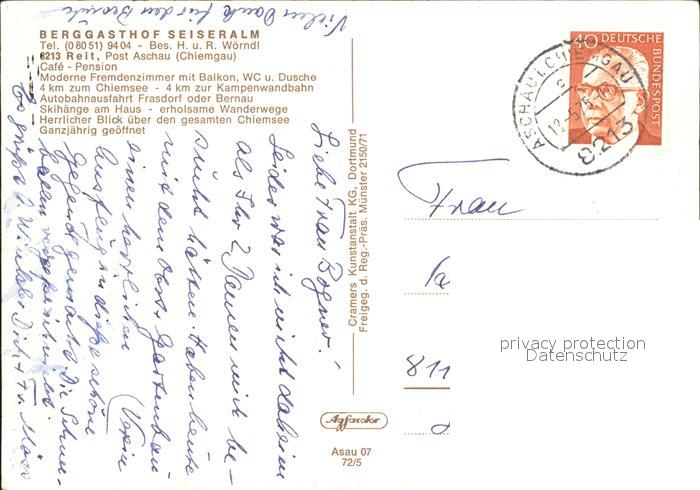 Vielen Dank für den Besuch
BERGGASTHOF SEISERALM
Tel. (0 80 51) 94 04 - Bes. H. u. R. Wörndl
8213 Reit, Post Aschau (Chiemgau)
Café - Pension
Moderne Fremdenzimmer mit Balkon, WC u. Dusche
4 km zum Chiemsee - 4 km zur Kampenwandbahn
Autobahnausfahrt Frasdorf oder Bernau
Skihänge am Haus - erholsame Wanderwege
Herrlicher Blick über den gesamten Chiemsee
Ganzjährig geöffnet
Liebe Frau Bogner!
Leider war ich nicht daheim
als Ihr 2 Damen mich be-
sucht hätten. Habe heute
mit dem Obst. Gartenbau
einen herrlichen (Verein
Ausflug in diese schöne
Gegend gemacht. Die Schnee-
Es grüßt
Cramers Kunstanstalt KG, Dortmund
Freigeg. d. Reg.-Präs. Münster 2150/71
Agfacolor
Asau 07
72/5
40 DEUTSCHE
BUNDESPOST
ASCHAU I. CHIEMGAU
c
12.-5.75-
8213
Frau
811
privacy protection
Datenschutz